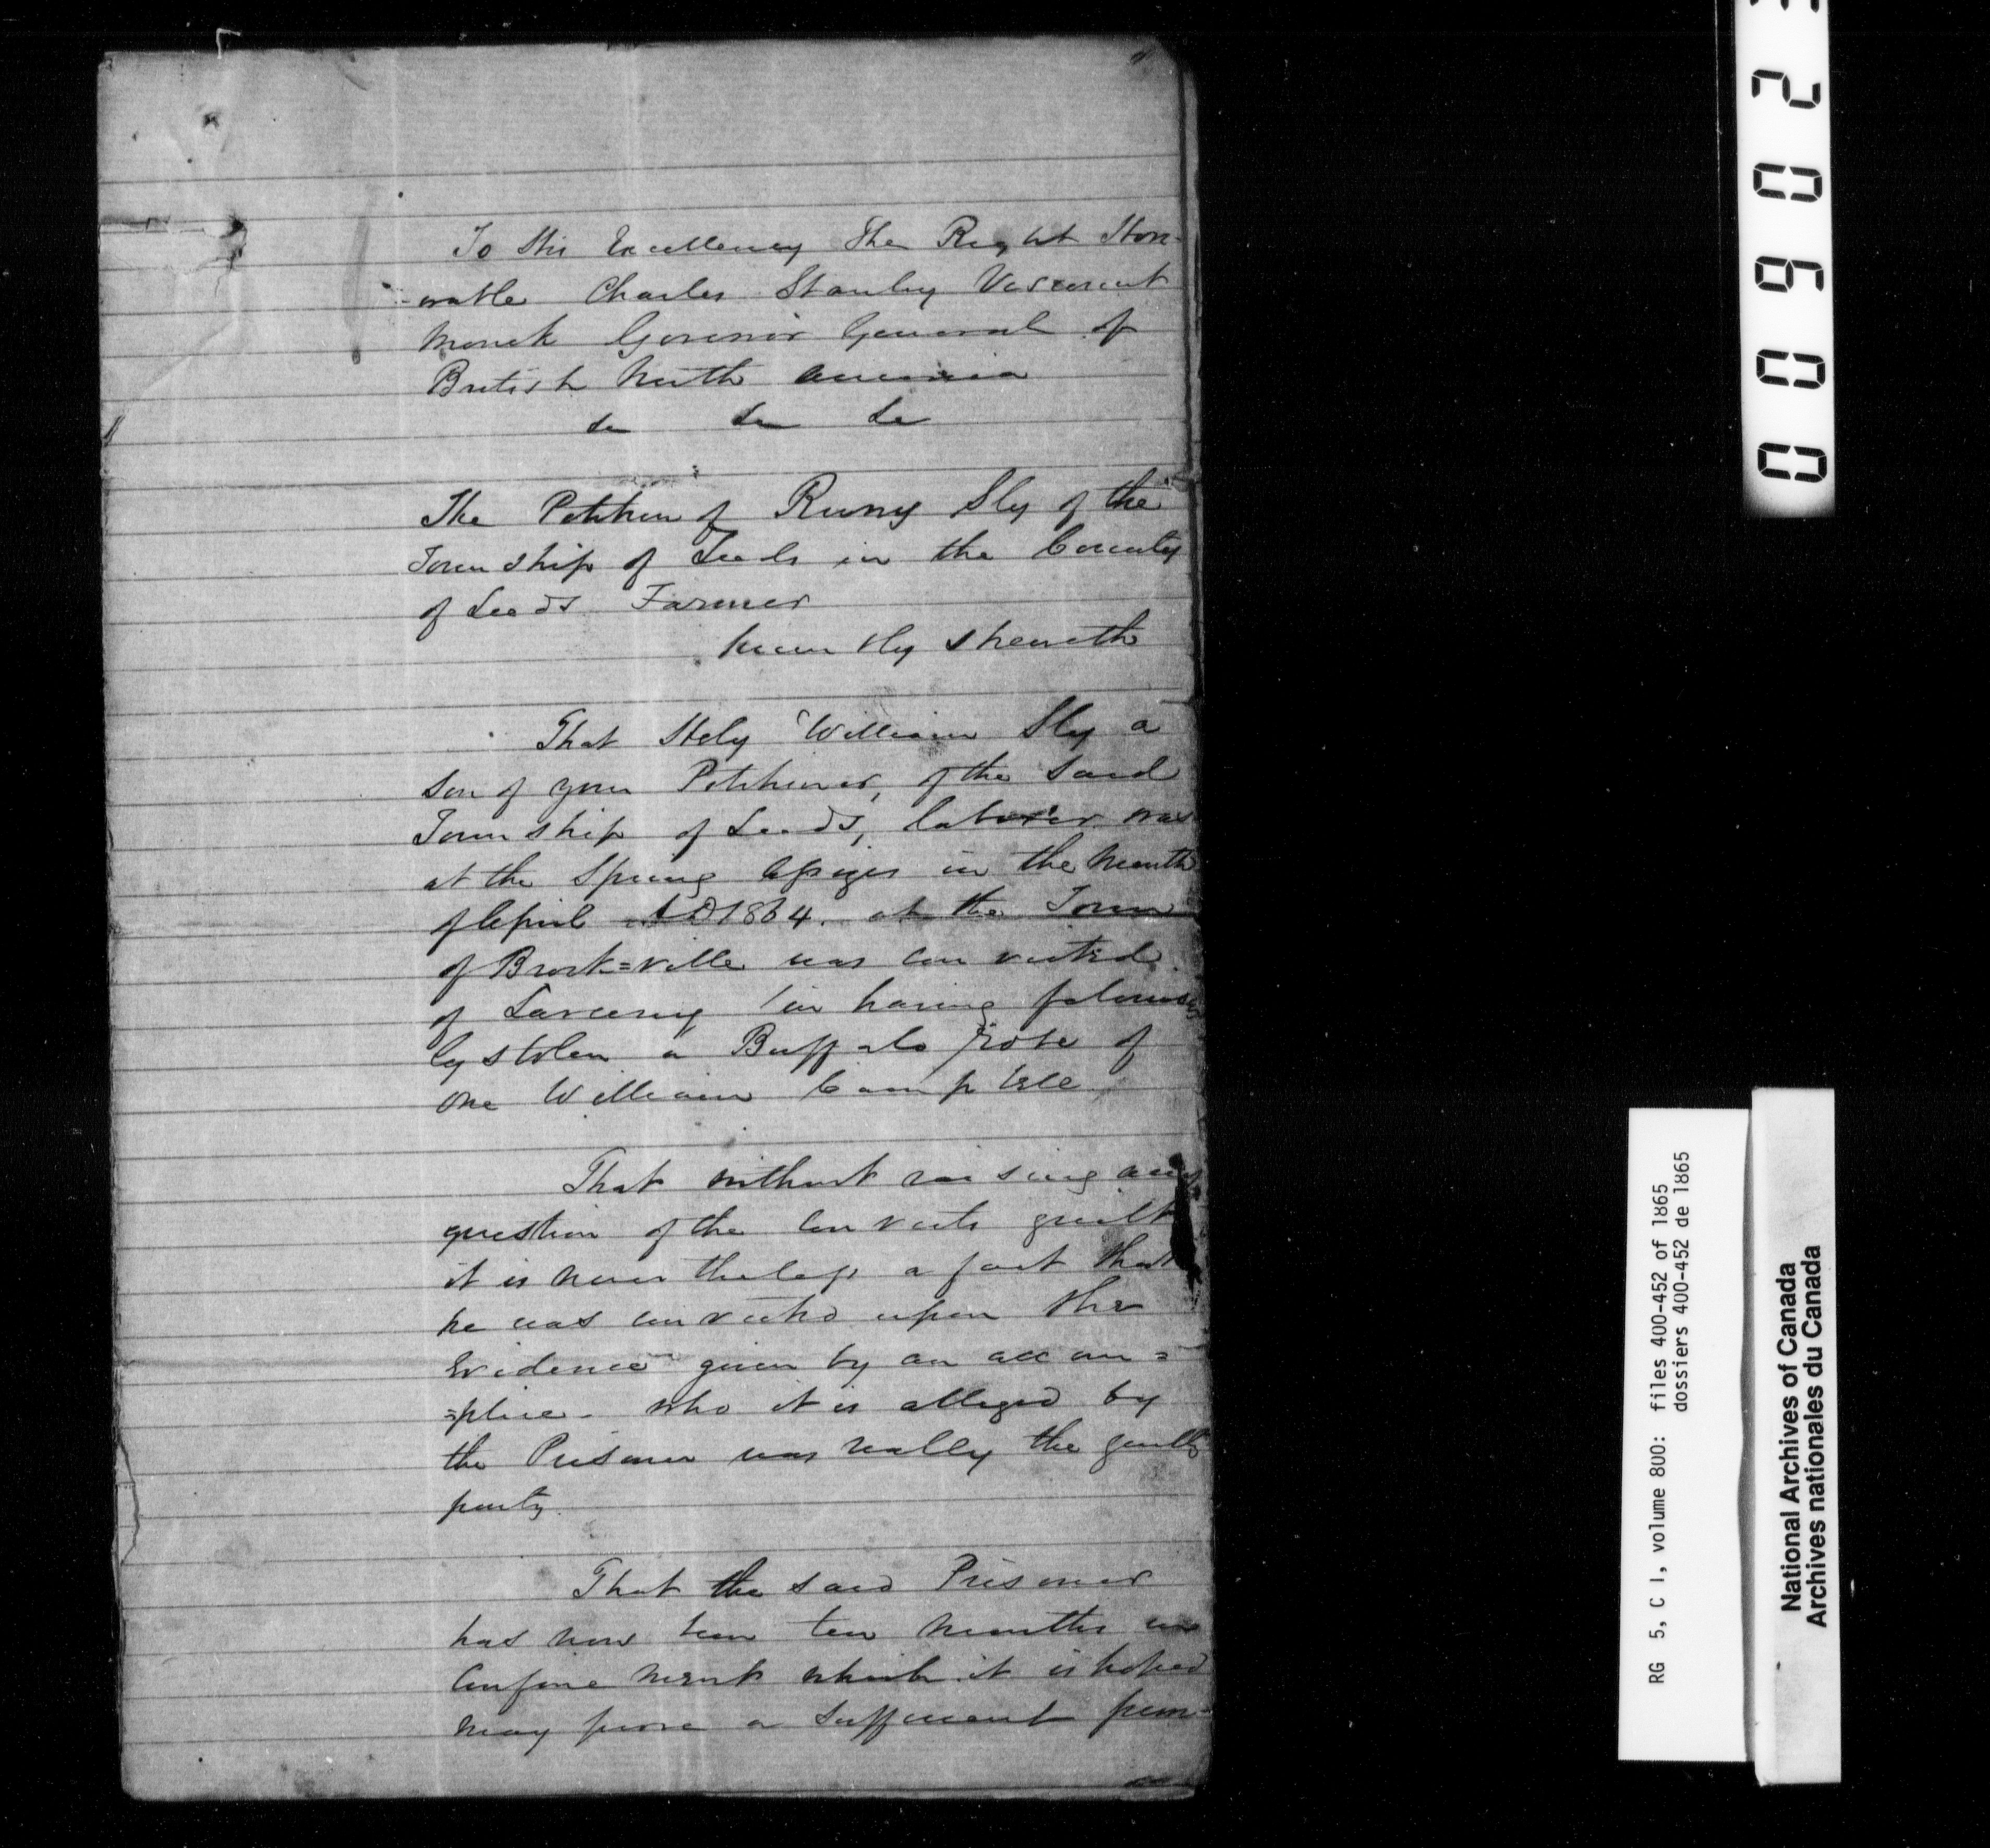 To His Excellency The Right Hon-
-orable Charles Stanley Viscount
Monck Govenor General of
British North America
&c &c &c
The Petition of Sly of the
Township of Leeds in the County
of Leeds Farmer
humbly sheweth
That Hely William Sly a
son of your Petitioner, of the said
Township of Leeds, laborer was
at the Spring Assizes in the Month
of April AD 1864. at the Town
of Brock=ville was convicted
of Larceny in having felonious
ly stolen a Buffalo robe of
one William Campbell
That without raising any
question of the convicts guilt
it is never theless a fact that
he was convicted upon the
Evidence given by an accom=
=plice - who it is alleged by
the Prisoner was really the guilty
party.
That the said Prisoner
has now been ten months in
Confinement which it is hoped
may prove a sufficient pun-
000902
RG 5, C 1, volume 800: files 400-452 of 1865
dossiers 400-452 de 1865
National Archives of Canada
Archives nationales du Canada